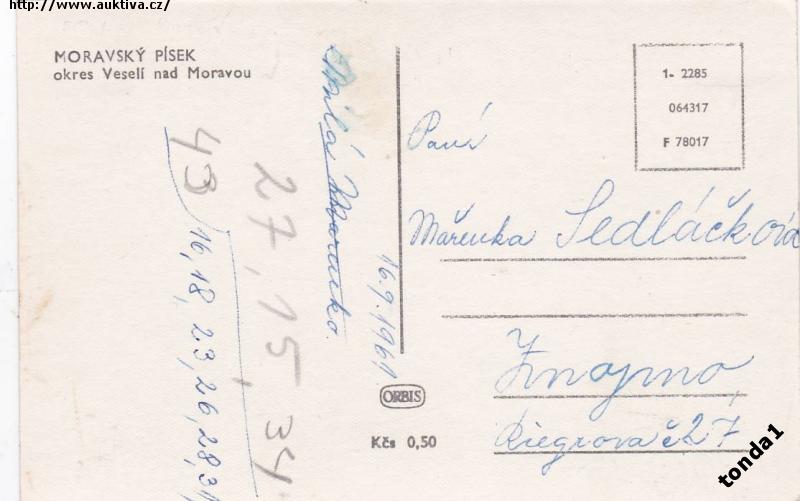 http://www.auktiva.cz/
MORAVSKÝ PÍSEK
okres Veselí nad Moravou
1- 2285
064317
F 78017
Paní
Mařenka Sedláčková
Znojmo
Riegrova č 27
Milá
16.9.1961.
43
16, 18, 23, 26, 28, 31
27, 15, 34
ORBIS
Kčs 0,50
tonda1